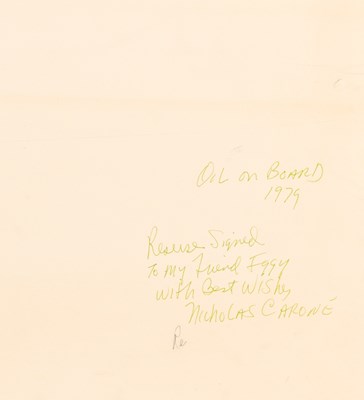 Oil on Board
1979
Reverse Signed
To My Friend Iggy
with Best Wishes
Nicholas Carone
Re